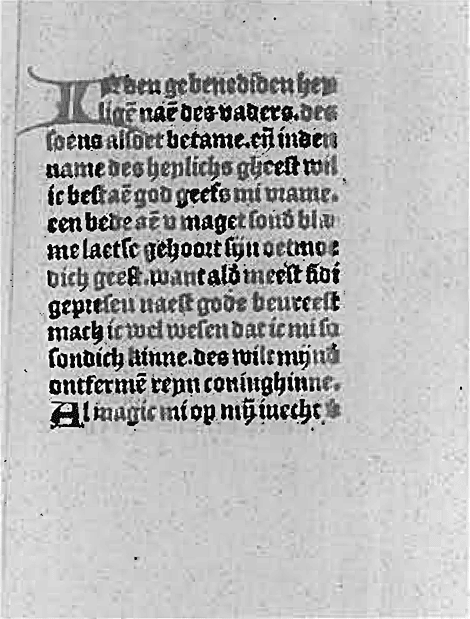 In den gebenediden hey
ligē naē des vaders. des
soens alsdet betame. eñ inden
name des heylichs gheest wil
ic best aē god geefs mi vrame.
een bede aē v maget sond̄ bla
me laetse gehoort sijn oetmoe
dich geest. want ald̄ meest sidi
gepresen naest gode
mach ic wel wesen dat ic mi so
sondich kinne. des wilt mijns
ontfermē reyn coninghinne.
Al magic mi op mȳ